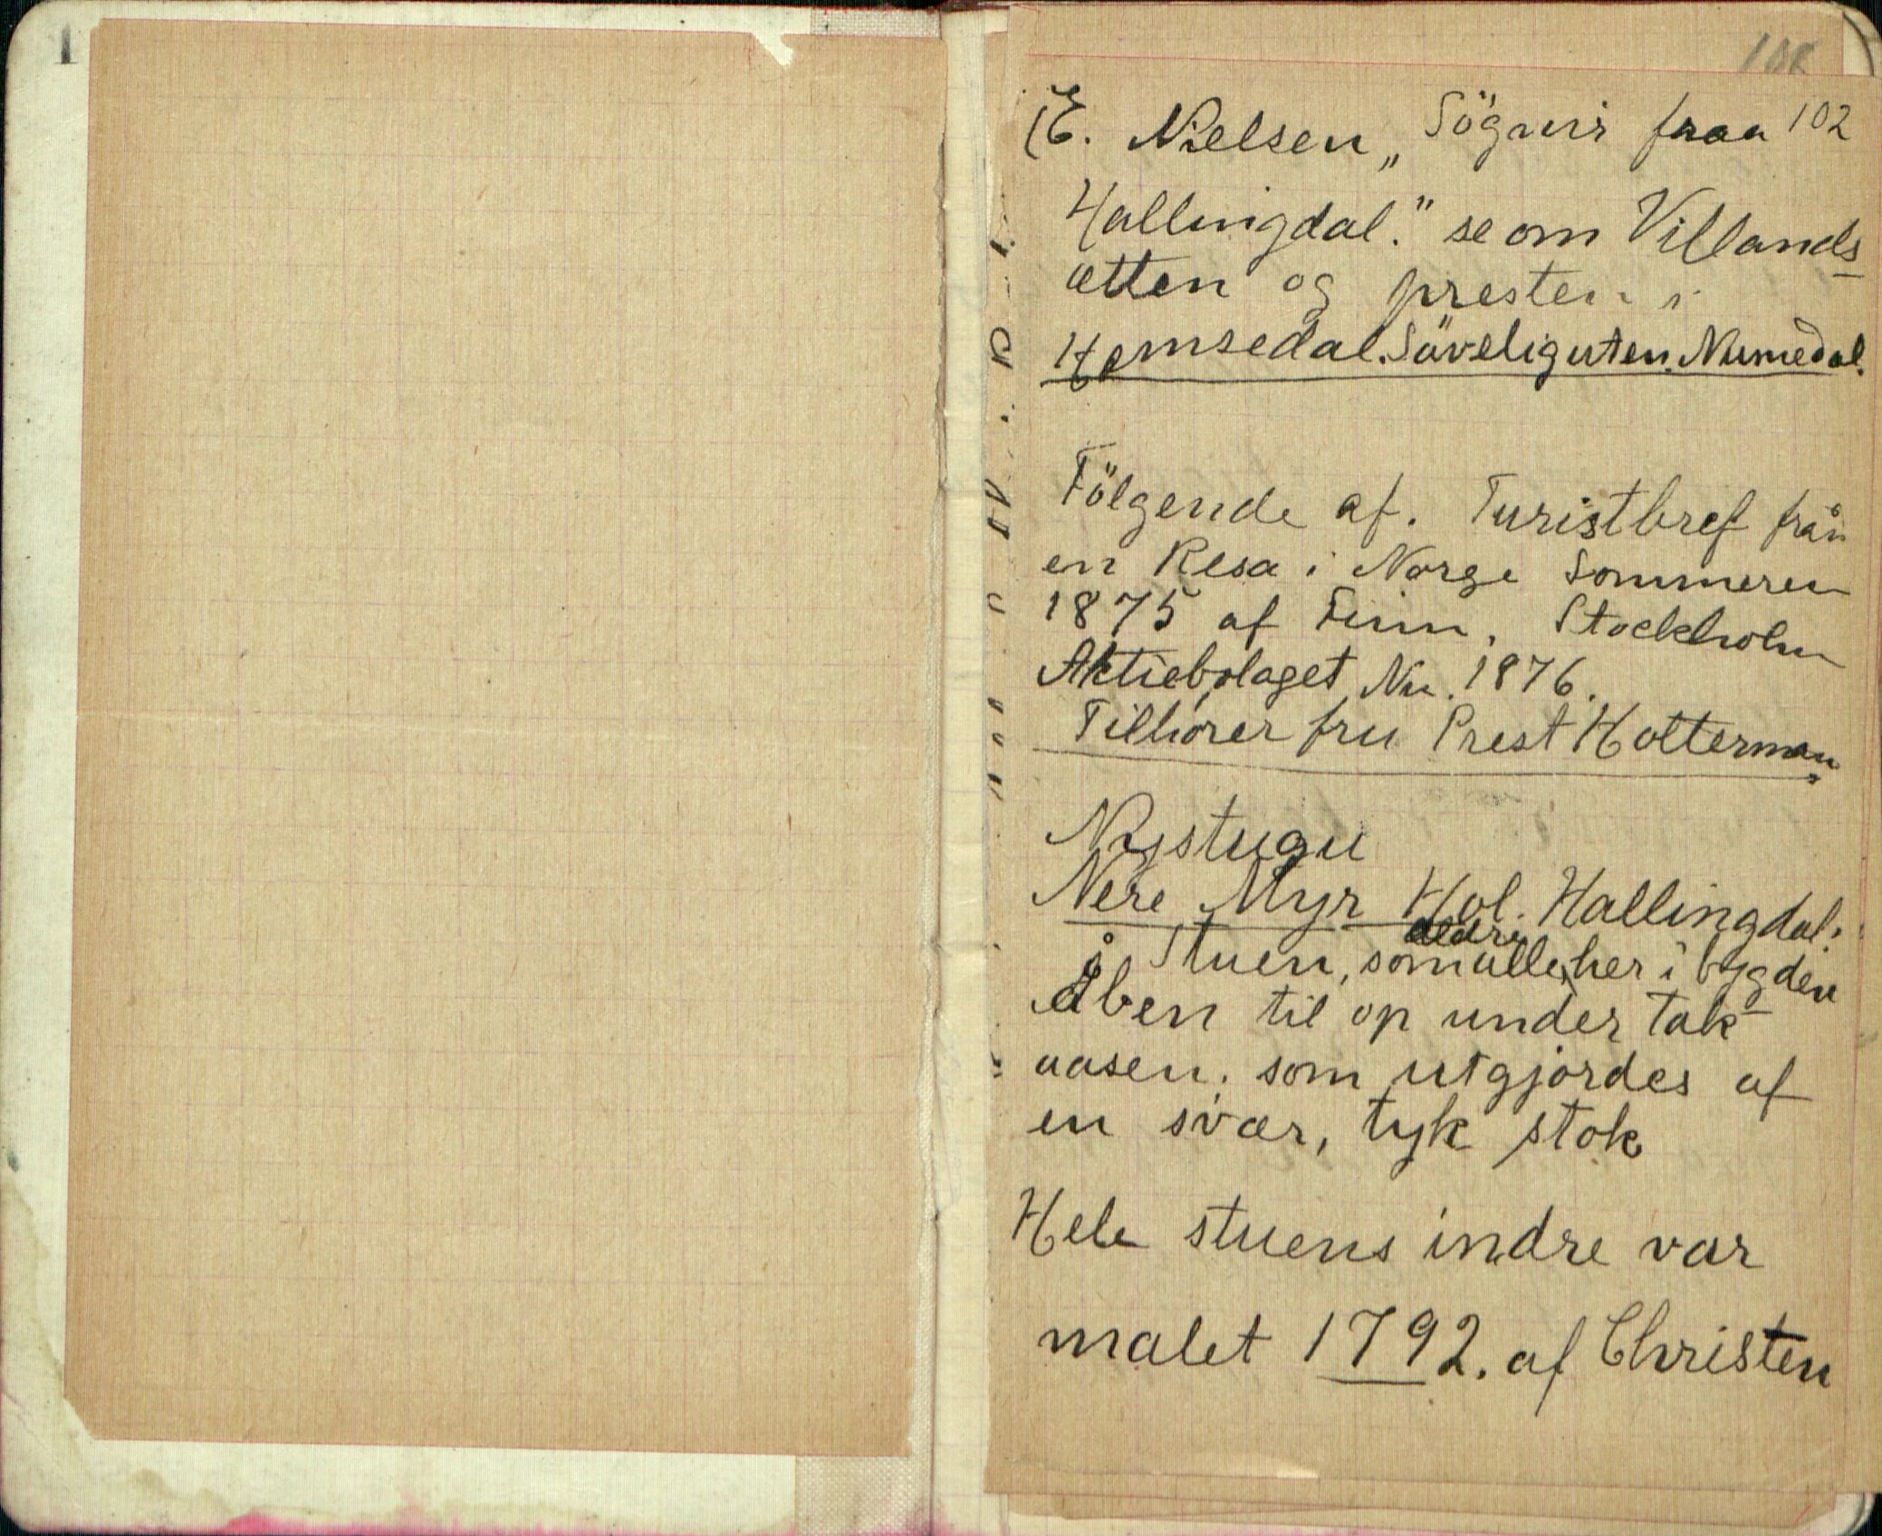 1
102
(E. Nielsen „Sögnir fraa
Hallingdal." se om Villands
ætten og presten i
Hemsedal. Söveliguten. Numedal.
Fölgende af. Turistbref från
en Resa i Norge Sommeren
1875 af Finn, Stockholm
Aktiebolaget Nu. 1876.
Tilhører fru Prest Holterman.
Nystugu
Nere Myr Hol. Hallingdal.
ældre
Stuen, som alle her i bygden
åben til op under tak
aasen. som utgjordes af
en svær, tyk stok
Hele stuens indre var
malet 1792. af Christen